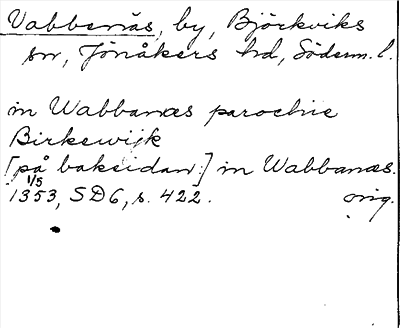 Vabbenäs, by, Björkviks
sn, Jönåkers hd, Söderm. l.
in Wabbanæs parochie
Birkewijk
[på baksidan:] in Wabbanæs.
1/5
1353, SD6, s. 422. orig.